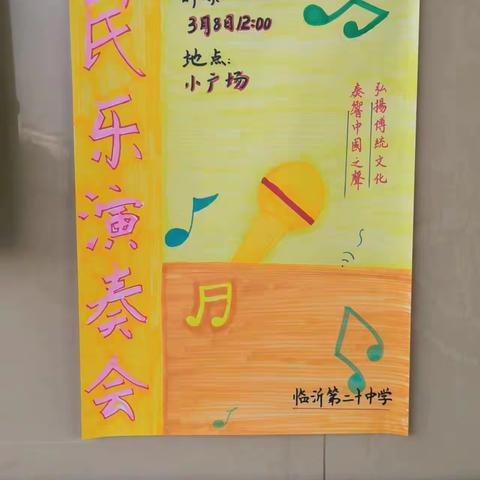 民乐演奏会
3月8日12:00
地点:
小广场
弘揚傳統文化
奏響中国之聲
临沂第二十中学